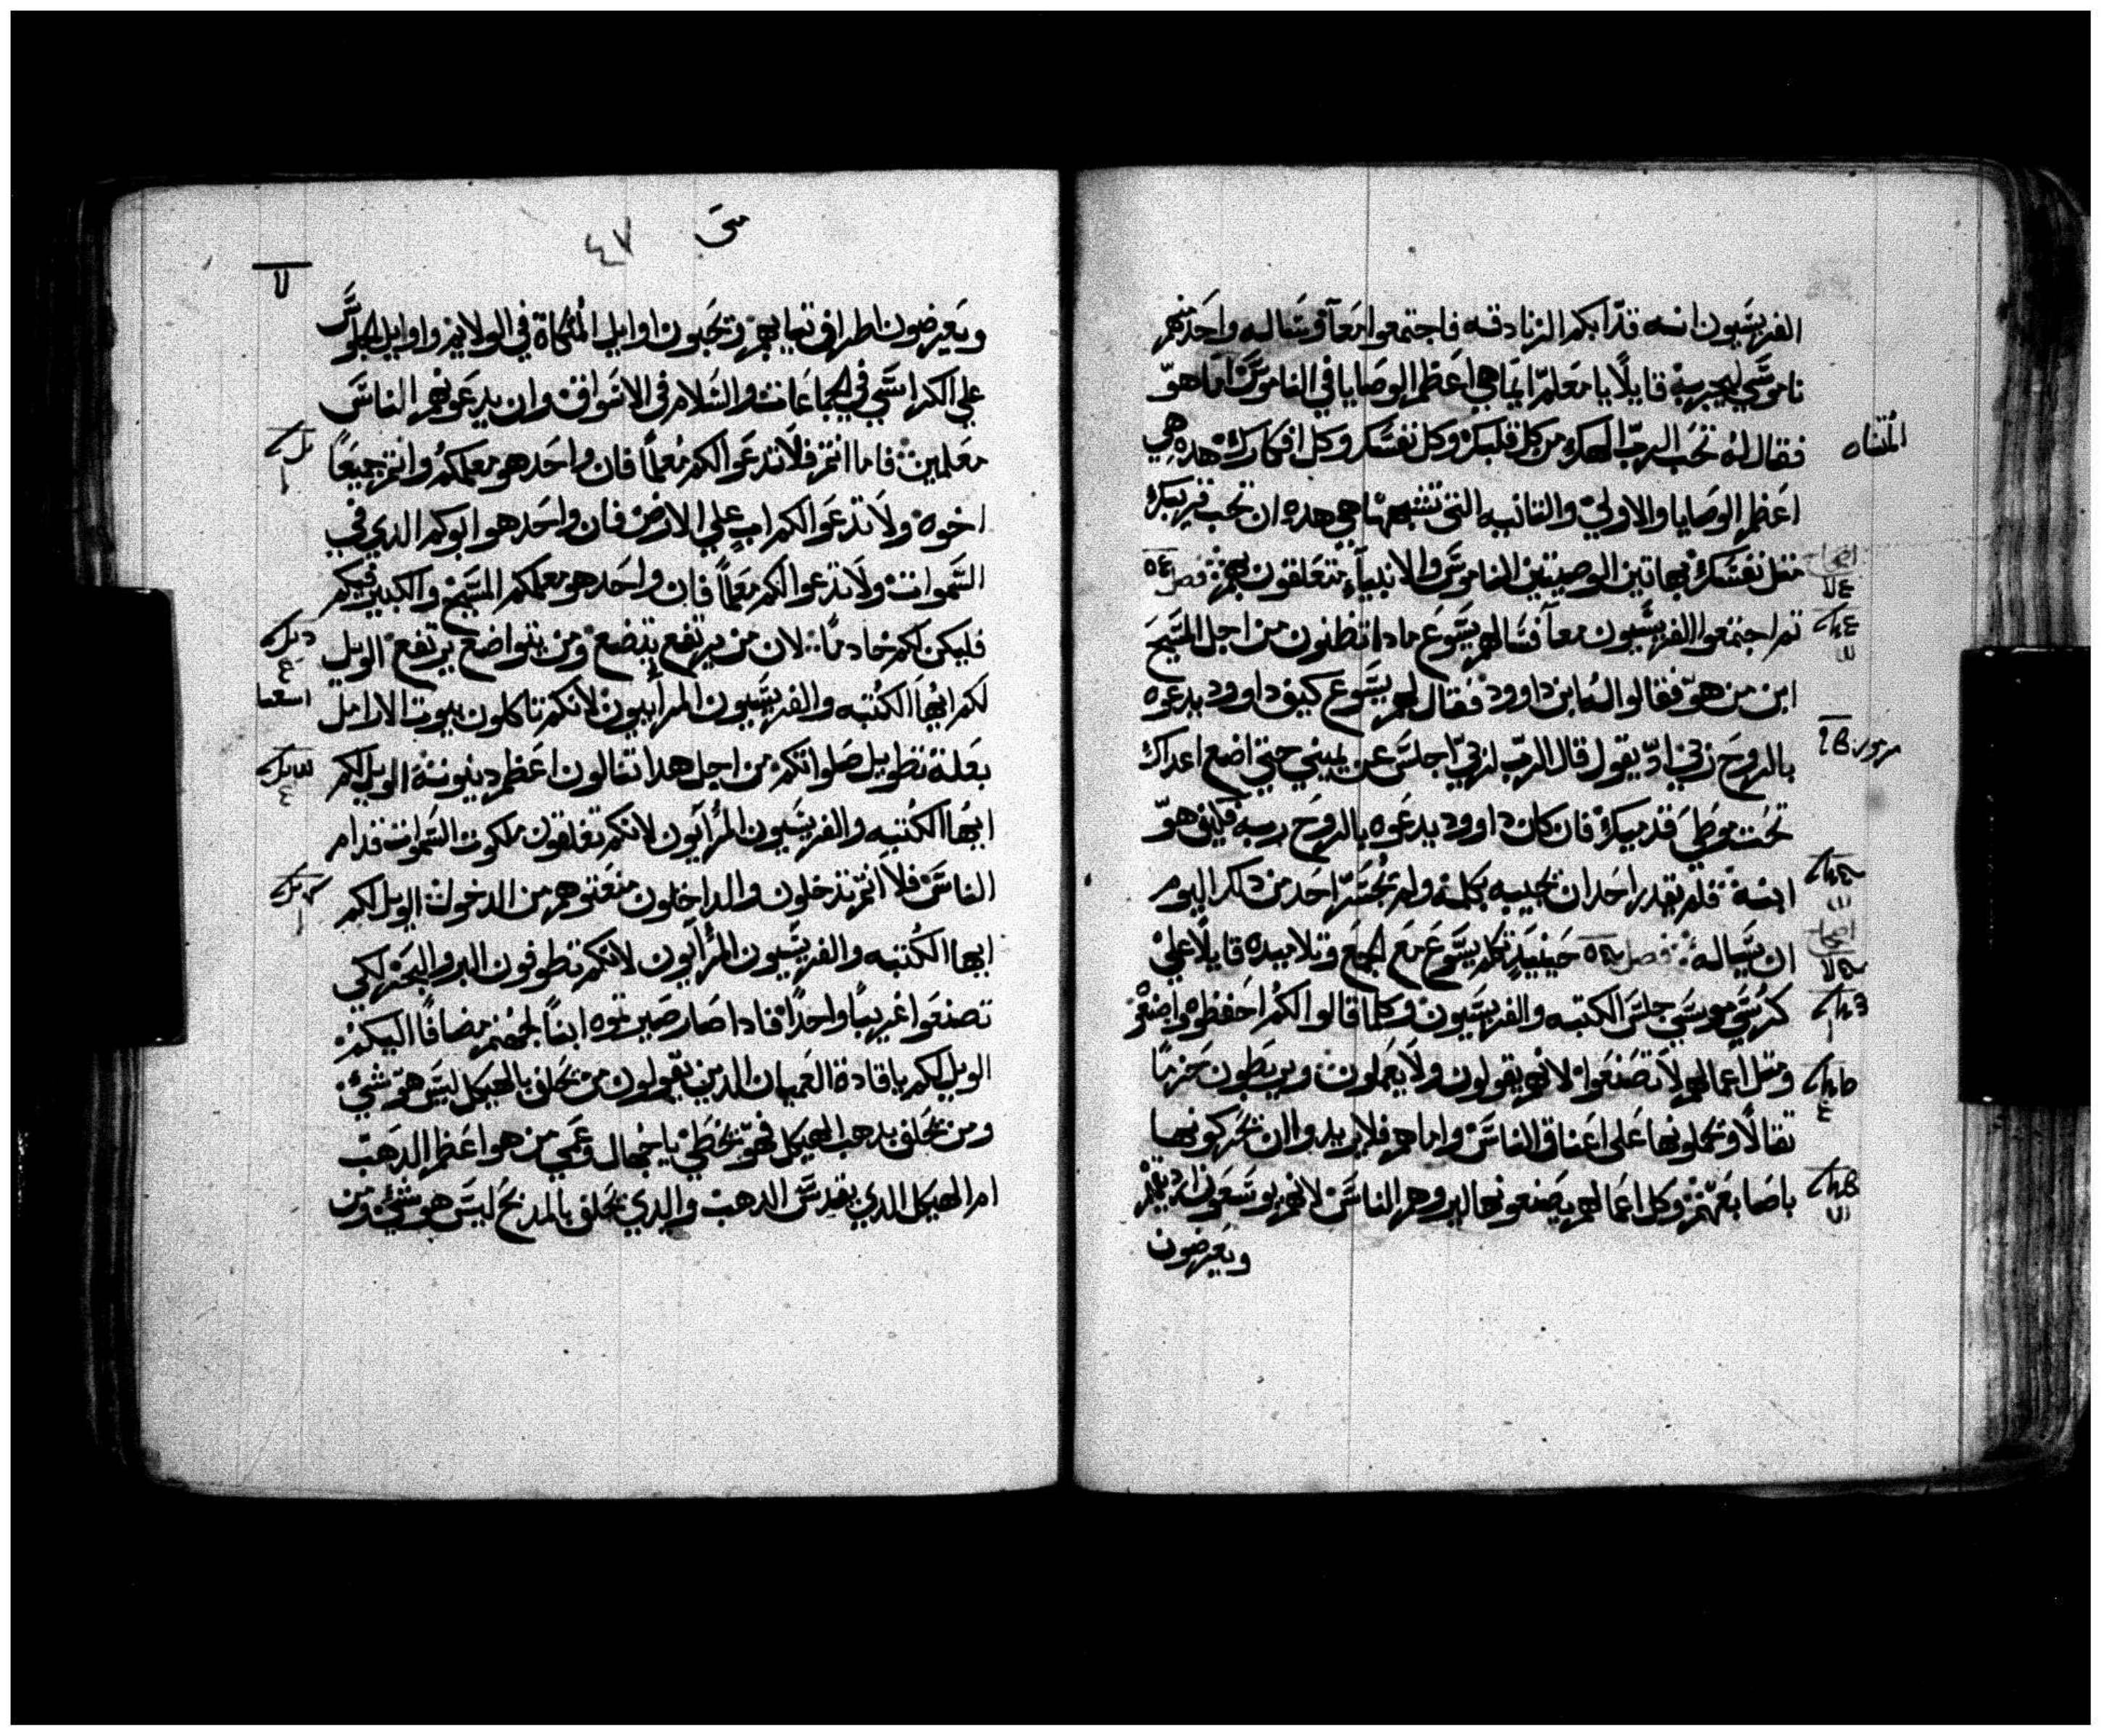 الفريسيون انه قد ابكم الزنادقه فاجتمعوا معاً وساله واحد منهم
ناموسي ليجربه قايلاً يا معلم ايما هي اعظم الوصايا في الناموس اما هو
فقال له تحب الرب الهك من كل قلبك وكل نفسك وكل افكارك هده هي
المتناه
اعظم الوصايا والاولي والتانيه التي تشبهها هي هده ان تحب قريبك
متل نفسك بهاتين الوصيتين الناموس والانبياء يتعلقون بهم فصل
تم اجتمعوا الفريسيون معاً فسالهم يسوع مادا تظنون من اجل المسيح
ابن من هو فقالوا له ابن داوود فقال لهم يسوع كيف داوود يدعوه
بالروح ربي اد يقول قال الرب لربي اجلس عن يميني حتي اضع اعداك
مزمور
تحت موطي قدميك فان كان داوود يدعوه بالروح ربه فكيف هو
ابنه فلم يقدر احد ان يجيبه بكلمه ولم تجسر احد من دلك اليوم
ان يساله فصل حينيد تكلم يسوع مع الجمع وتلاميده قايلاً علي
كرسي موسي جلس الكتبه والفريسيون وكلما قالوا لكم احفظوه واصنعو
ومتل اعمالهم لا تصنعوا لانهم يقولون ولا يعملون ويربطون حزماً
تقالاً ويحملونها علي اعناق الناس واما هم فلا يريدوا ان تحركونها
باصابعهم وكل اعمالهم يصنعونها ليروهم الناس لانهم يوسعون ارديتهم
ويعرضون
متى ٤٧
ويعرضون اطراف تيابهم وتحبون اوايل المتكاة في الولايم واوايل الجلوس
علي الكراسي في الجماعات والسلام في الاسواق وان يدعونهم الناس
معلمين فاما انتم فلا تدعوا لكم معلماً فان واحد هو معلمكم وانتم جميعاً
اخوه ولا تدعوا لكم اب علي الارض فان واحد هو ابوكم الدي في
السموات ولا تدعوا لكم معلماً فان واحد هو معلمكم المسيح والكبير فيكم
فليكن لكم خادماً لان من يرتفع يتضع ومن يتواضع يرتفع الويل
لكم ايها الكتبه والفريسيون المراييون لانكم تاكلون بيوت الارامل
بعلة تطويل صلواتكم من اجل هدا تنالون اعظم دينونة الويل لكم
ايها الكتبه والفريسيون المرأيون لانكم تغلقون ملكوت السموات قدام
الناس فلا انتم تدخلون والداخلون منعتوهم من الدخول الويل لكم
ايها الكتبه والفريسيون المرأيون لانكم تطوفون البر والبحر لكي
تصنعوا غريباً واحداً فادا صار صيرتموه ابناً لجهنم مضافاً اليكم
الويل لكم يا قادة العميان الدين يقولون من يحلف بالهيكل ليس هو شيء
ومن يحلف بدهب الهيكل فهو يخطي يا جهال وعمي من هو اعظم الدهب
ام الهيكل الدي يقدس الدهب والدي يحلف بالمدبح ليس هو شيء ومن